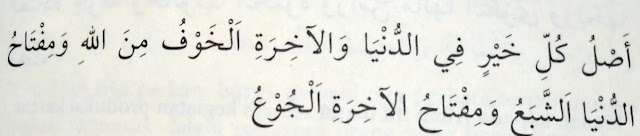 أَصْلُ كُلِّ خَيْرٍ فِي الدُّنْيَا وَالْآخِرَةِ اَلْخَوْفُ مِنَ اللهِ وَمِفْتَاحُ
الدُّنْيَا اَلشَّبَعُ وَمِفْتَاحُ الآخِرَةِ اَلْجُوْعُ